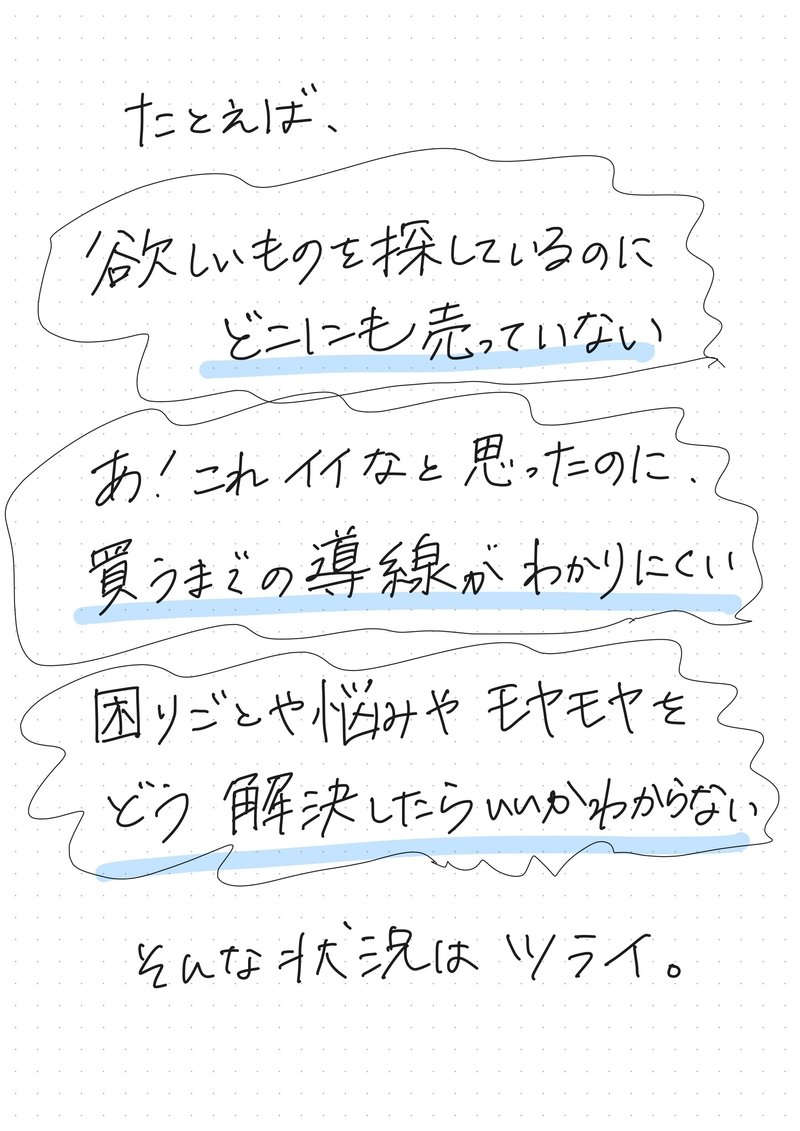 たとえば、
欲しいものを探しているのに
どこにも売っていない
あ！これイイなと思ったのに、
買うまでの導線がわかりにくい
困りごとや悩みやモヤモヤを
どう解決したらいいかわからない
そんな状況はツライ。